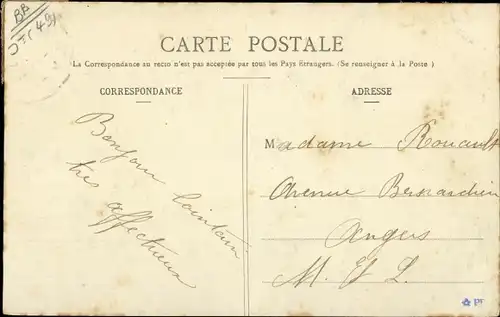 BB
CARTE POSTALE
La Correspondance au recto n'est pas acceptée par tous les Pays Étrangers. (Se renseigner à la Poste)
CORRESPONDANCE
Bonjour lointain
très
affectueux
ADRESSE
Madame Rouault
Avenue Bernardin
Angers
M. & L.